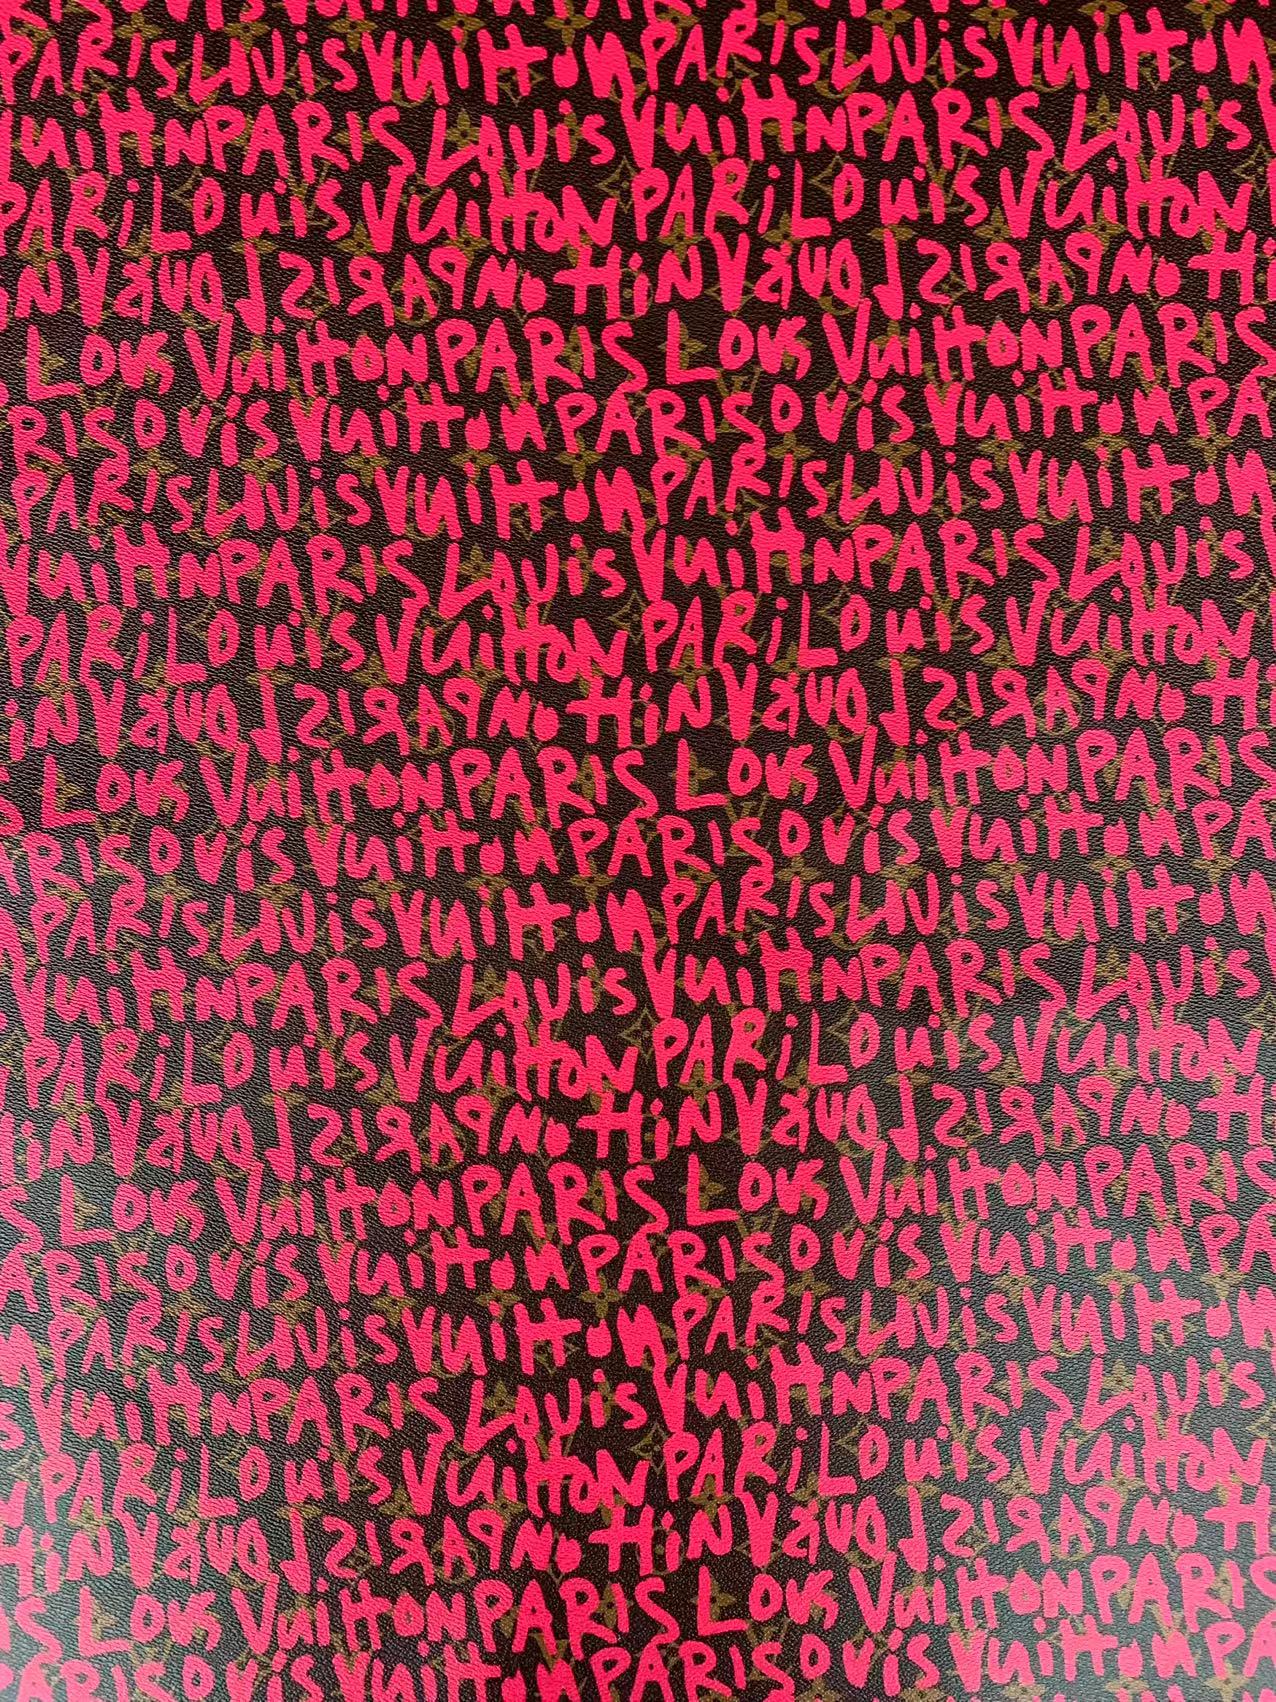 PARISLOUiSVuiHonPARISLOUiSVuiHon
VuiHnPARIS LOUiS VuiHnPARIS LOUiS
PARiLOuiSVuiHON PARiLOuiSVuiHON
iNVsUOL SIRAPNoHiNVsUOL SIRAPNoH
LOUS VuiHONPARIS LOUS VuiHONPARIS
RISOUiSVuiHonPARISOUiSVuiHonPA
PARISLOUiSVuiHonPARISLOUiSVuiHon
VuiHnPARIS LOUiS VuiHnPARIS LOUiS
PARiLOuiSVuiHON PARiLOuiSVuiHON
iNVsUOL SIRAPNoHiNVsUOL SIRAPNoH
LOUS VuiHONPARIS LOUS VuiHONPARIS
RISOUiSVuiHonPARISOUiSVuiHonPA
PARISLOUiSVuiHonPARISLOUiSVuiHon
VuiHnPARIS LOUiS VuiHnPARIS LOUiS
PARiLOuiSVuiHON PARiLOuiSVuiHON
iNVsUOL SIRAPNoHiNVsUOL SIRAPNoH
S LOUS VuiHONPARIS LOUS VuiHONPARIS
ARISOUiSVuiHonPARISOUiSVuiHonPA
nPARISLOUiSVuiHonPARISLOUiSVuiHon
S VuiHnPARIS LOUiS VuiHnPARIS LOUiS
N PARiLOuiSVuiHON PARiLOuiSVuiHON
HiNVsUOL SIRAPNoHiNVsUOL SIRAPNoH
IS LOUS VuiHONPARIS LOUS VuiHONPARIS
PARISOUiSVuiHonPARISOUiSVuiHonPA